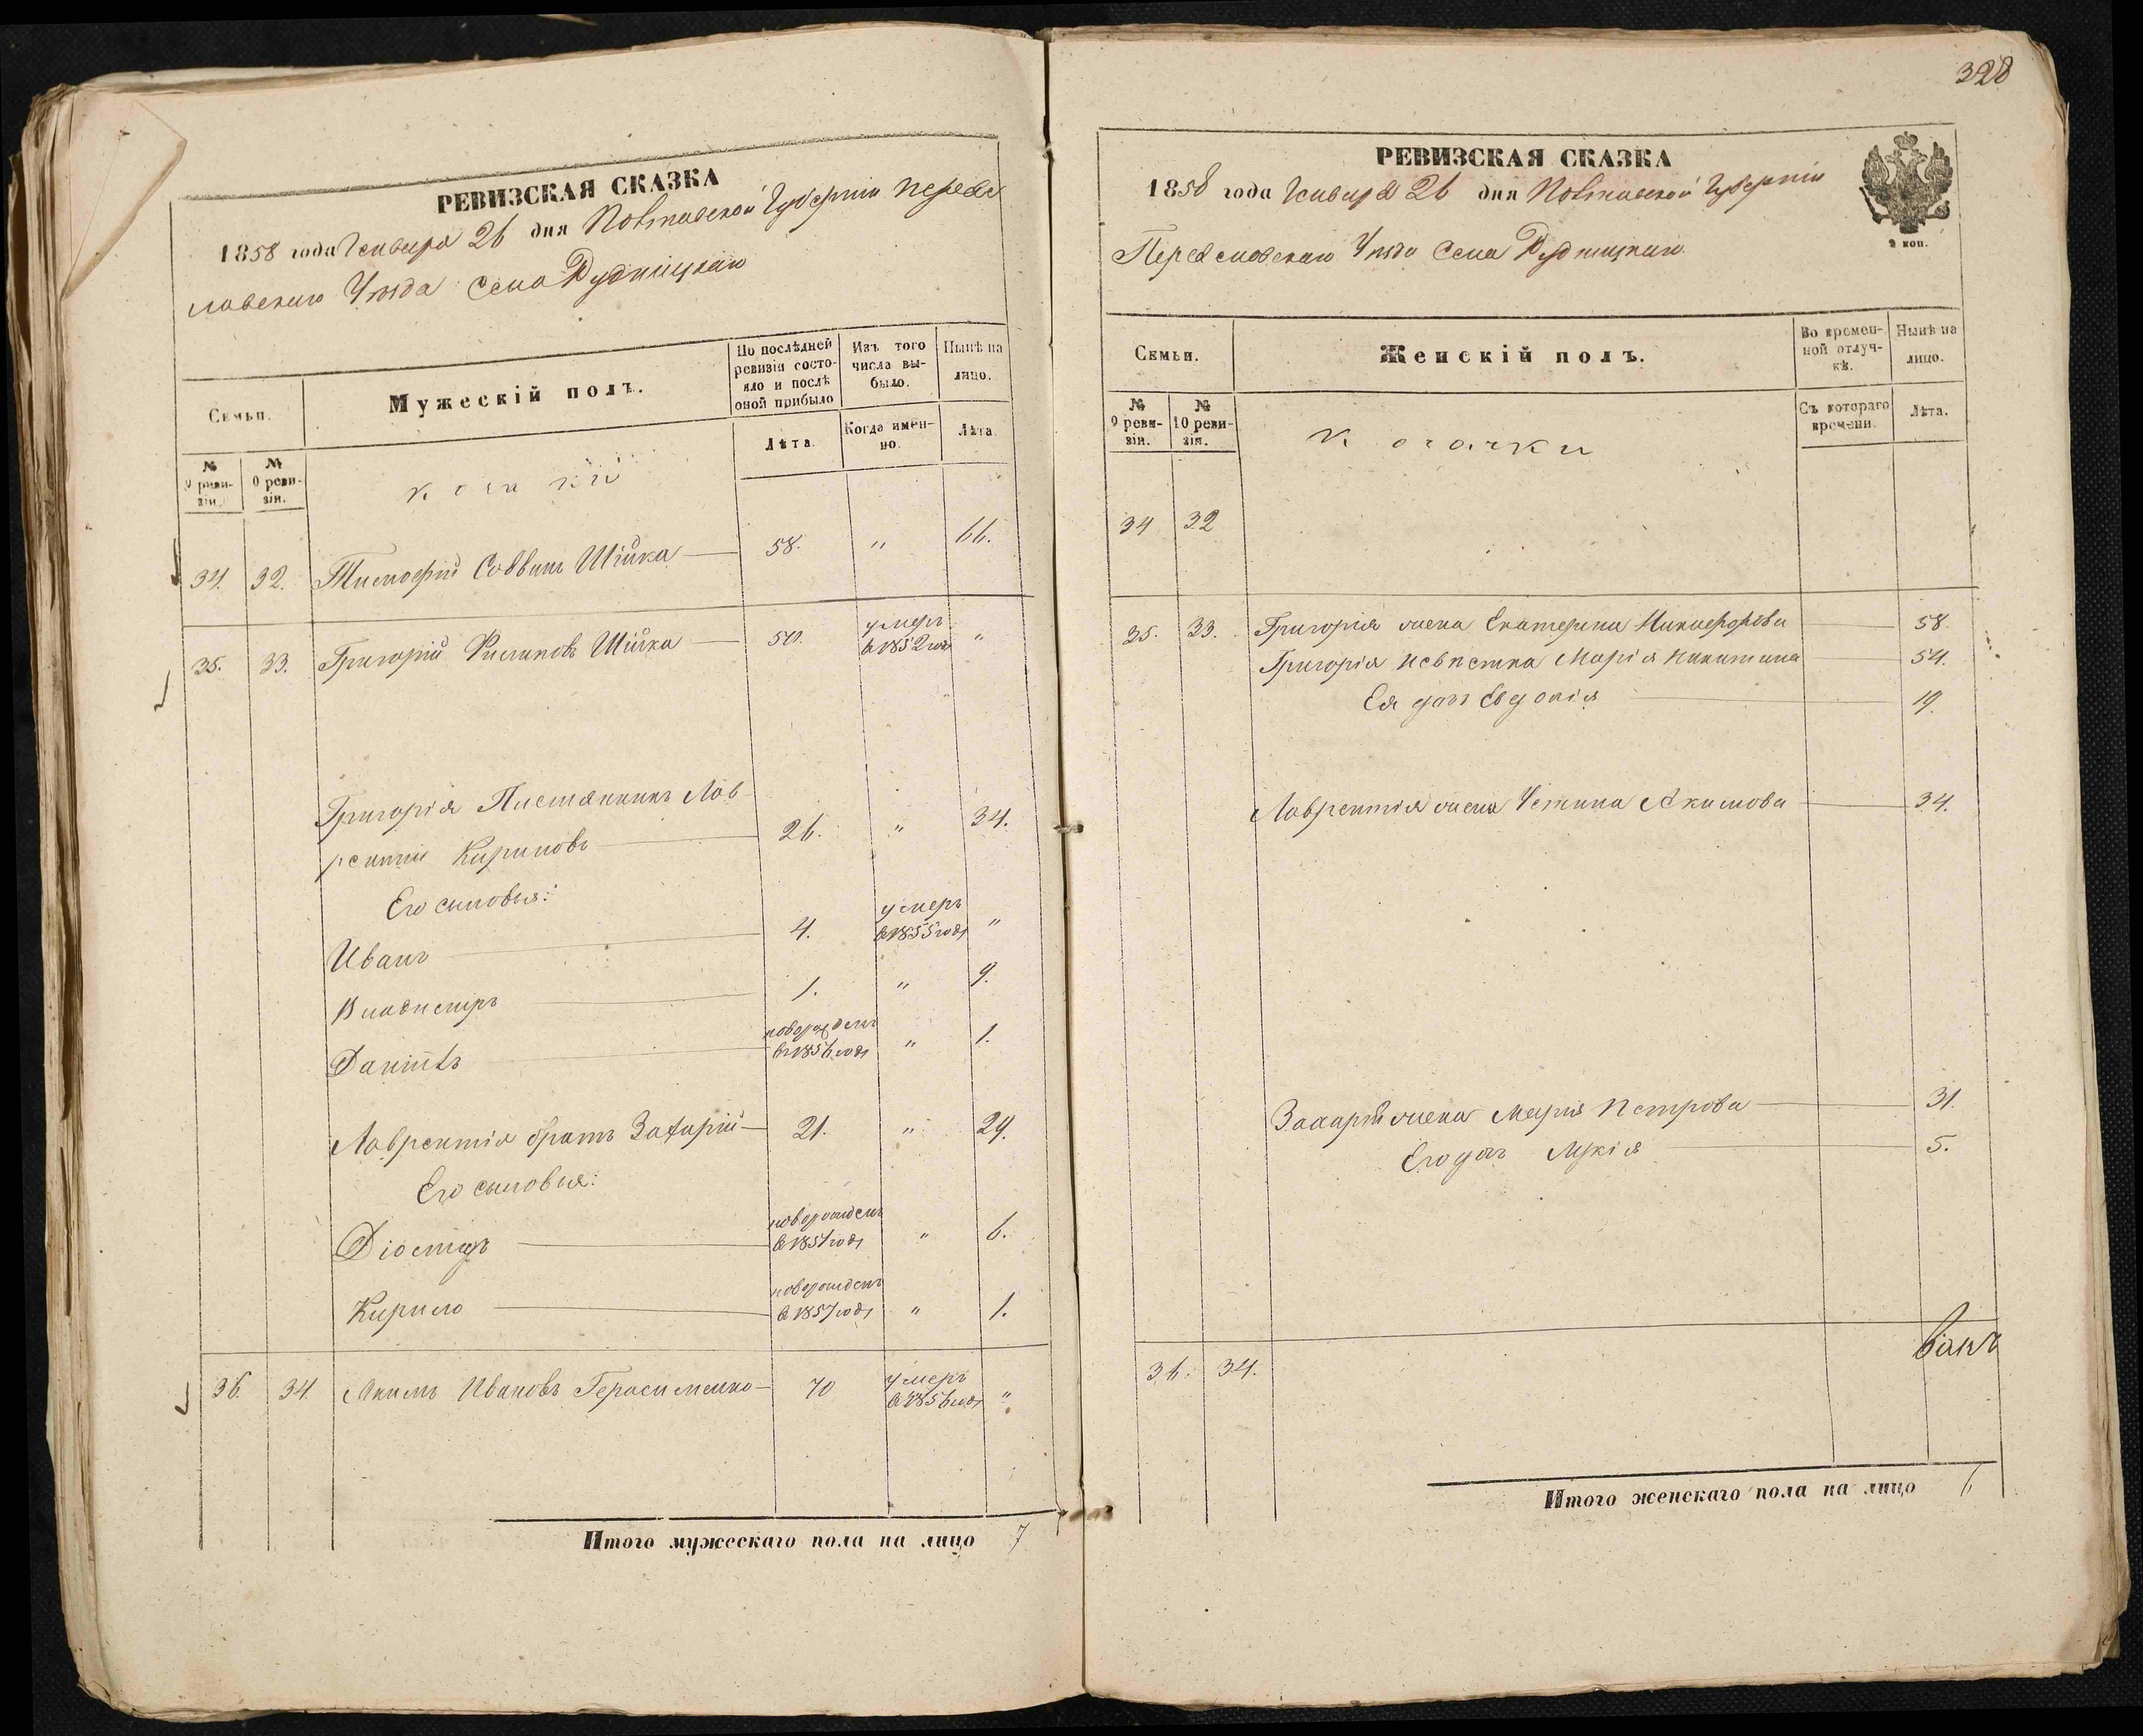 РЕВИЗСКАЯ СКАЗКА
1858 года Генваря 26 дня Полтавской Губерніи Переяс
лавскаго Уѣзда Села Рудницкаго
Семьи.
Мужескій полъ.
По послѣдней ревизіи состояло и послѣ оной прибыло
Изъ того числа выбыло.
Нынѣ на лицо.
№ 9 ревизіи.
№ 10 ревизіи.
Лѣта.
Когда именно.
Лѣта.
34. 32. Тимофій Саввинъ Шійка 58. " 66.
35. 33. Григорій Филиповъ Шійка 50. умеръ в 1852 годѣ "
Григорія Племянникъ Лав-
рентій Кириловъ 26. " 34.
Его сыновья:
Иванъ 4. умеръ в 1855 годѣ "
Владимиръ 1. " 9.
Даніилъ новорожденъ въ 1856 годѣ " 1.
Лаврентія братъ Захарій 21. " 29.
Его сыновья:
новорожденъ в 1851 годѣ " 6.
Кирило новорожденъ в 1857 годѣ " 1.
36. 34. Акимъ Ивановъ Герасименко 70 умеръ в 1856 годѣ "
Итого мужескаго пола на лицо 7
328
РЕВИЗСКАЯ СКАЗКА
1858 года Генваря 26 дня Полтавской Губерніи
Переяславскаго Уѣзда Села Рудницкаго
2 коп.
Семьи.
Женскій полъ.
Во временной отлучкѣ.
Нынѣ на лицо.
№ 9 ревизіи.
№ 10 ревизіи.
Съ котораго времени.
Лѣта.
козачки
34 32
35. 33. Григорія жена Екатерина Никифорова 58.
Григорія невѣстка Марія Никитина 54.
Ея дочь Евдокія 19.
Лаврентія жена Устина Акимова 34.
Захарія жена Марія Петрова 31.
Его дочь 5.
36. 34.
Итого женскаго пола на лицо 6